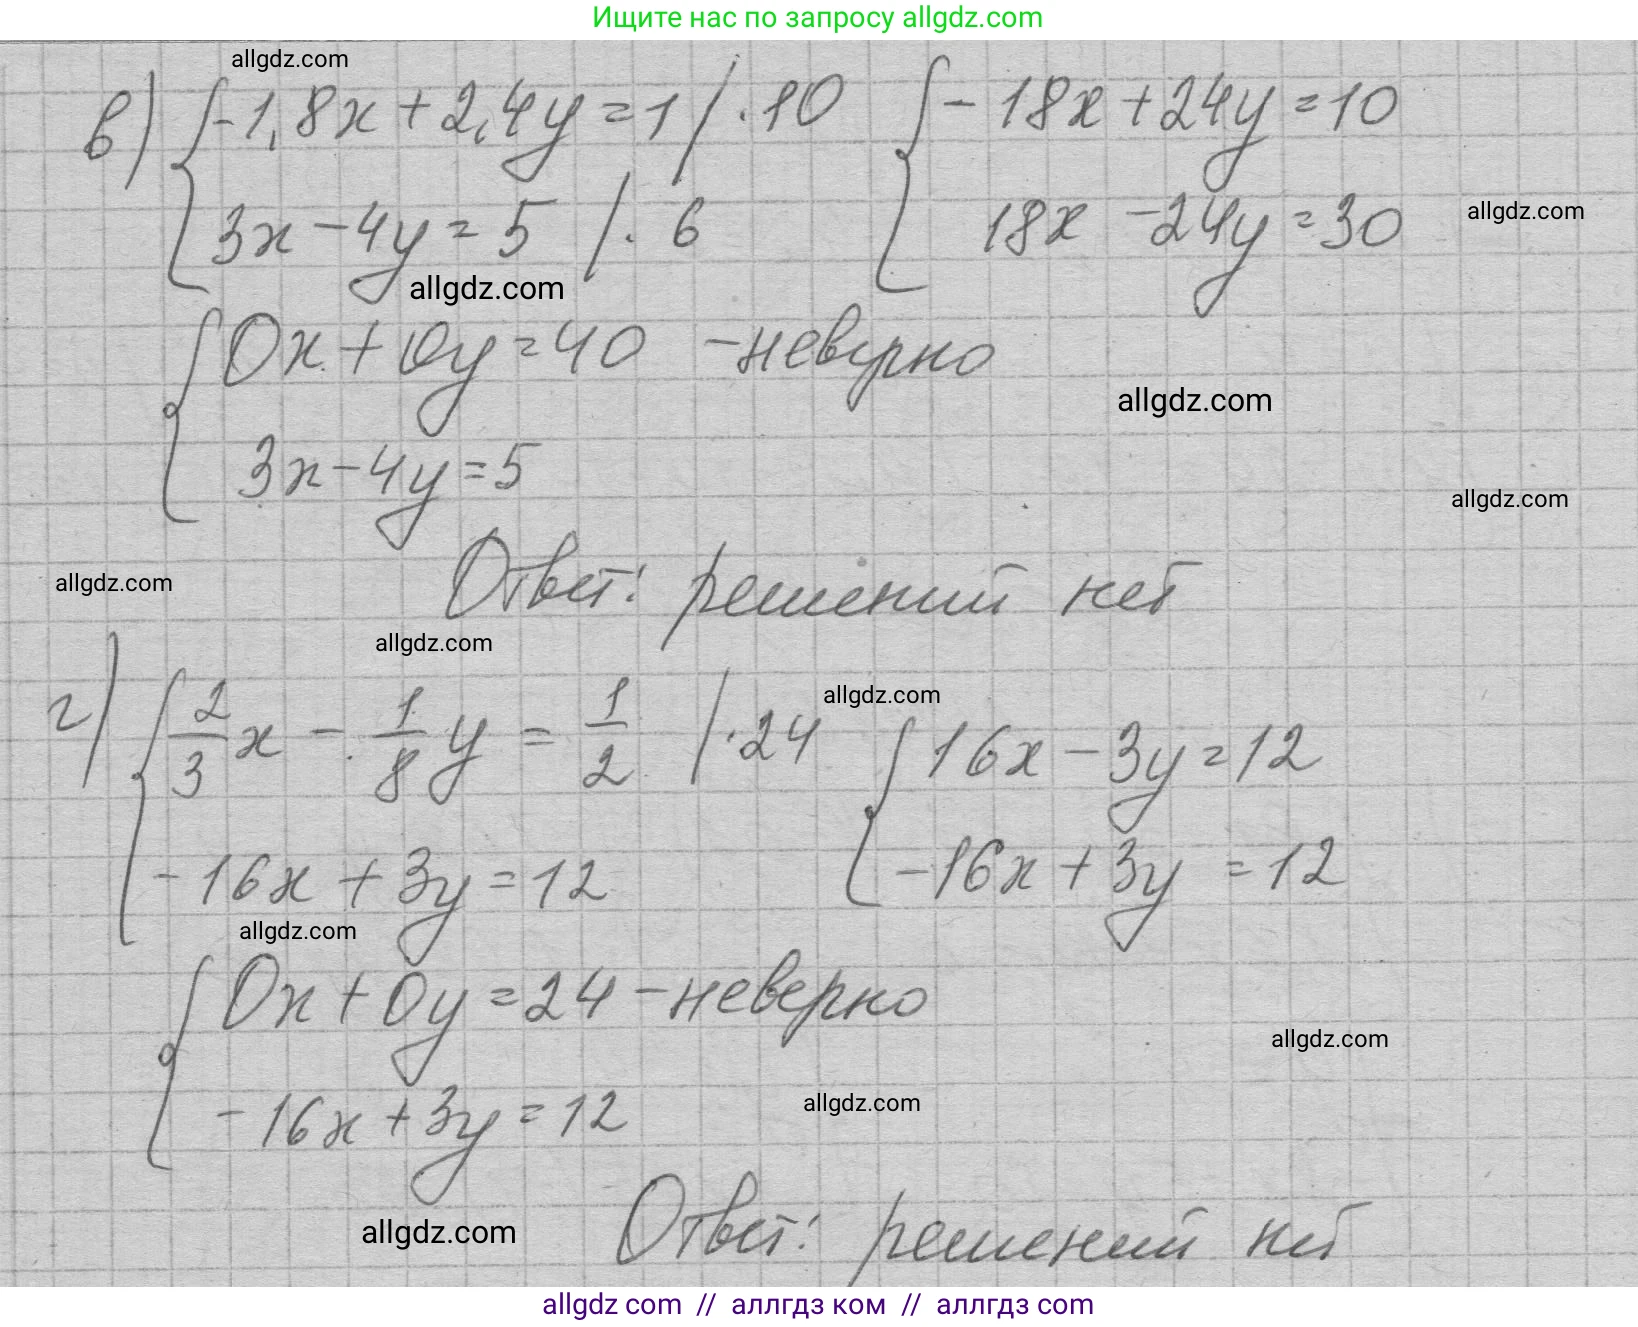 Ищите нас по запросу allgdz.com
allgdz.com
в) { -1,8x + 2,4y = 1 / · 10 { - 18x + 24y = 10
3x - 4y = 5 / · 6 18x - 24y = 30 allgdz.com
allgdz.com
{ 0x + 0y = 40 - неверно
allgdz.com
3x - 4y = 5
allgdz.com
allgdz.com
Ответ: решений нет
allgdz.com
allgdz.com
г) { 2/3 x - 1/8 y = 1/2 / · 24 { 16x - 3y = 12
-16x + 3y = 12 -16x + 3y = 12
allgdz.com
{ 0x + 0y = 24 - неверно
allgdz.com
allgdz.com
-16x + 3y = 12
allgdz.com
Ответ: решений нет
allgdz com // аллгдз ком // аллгдз com